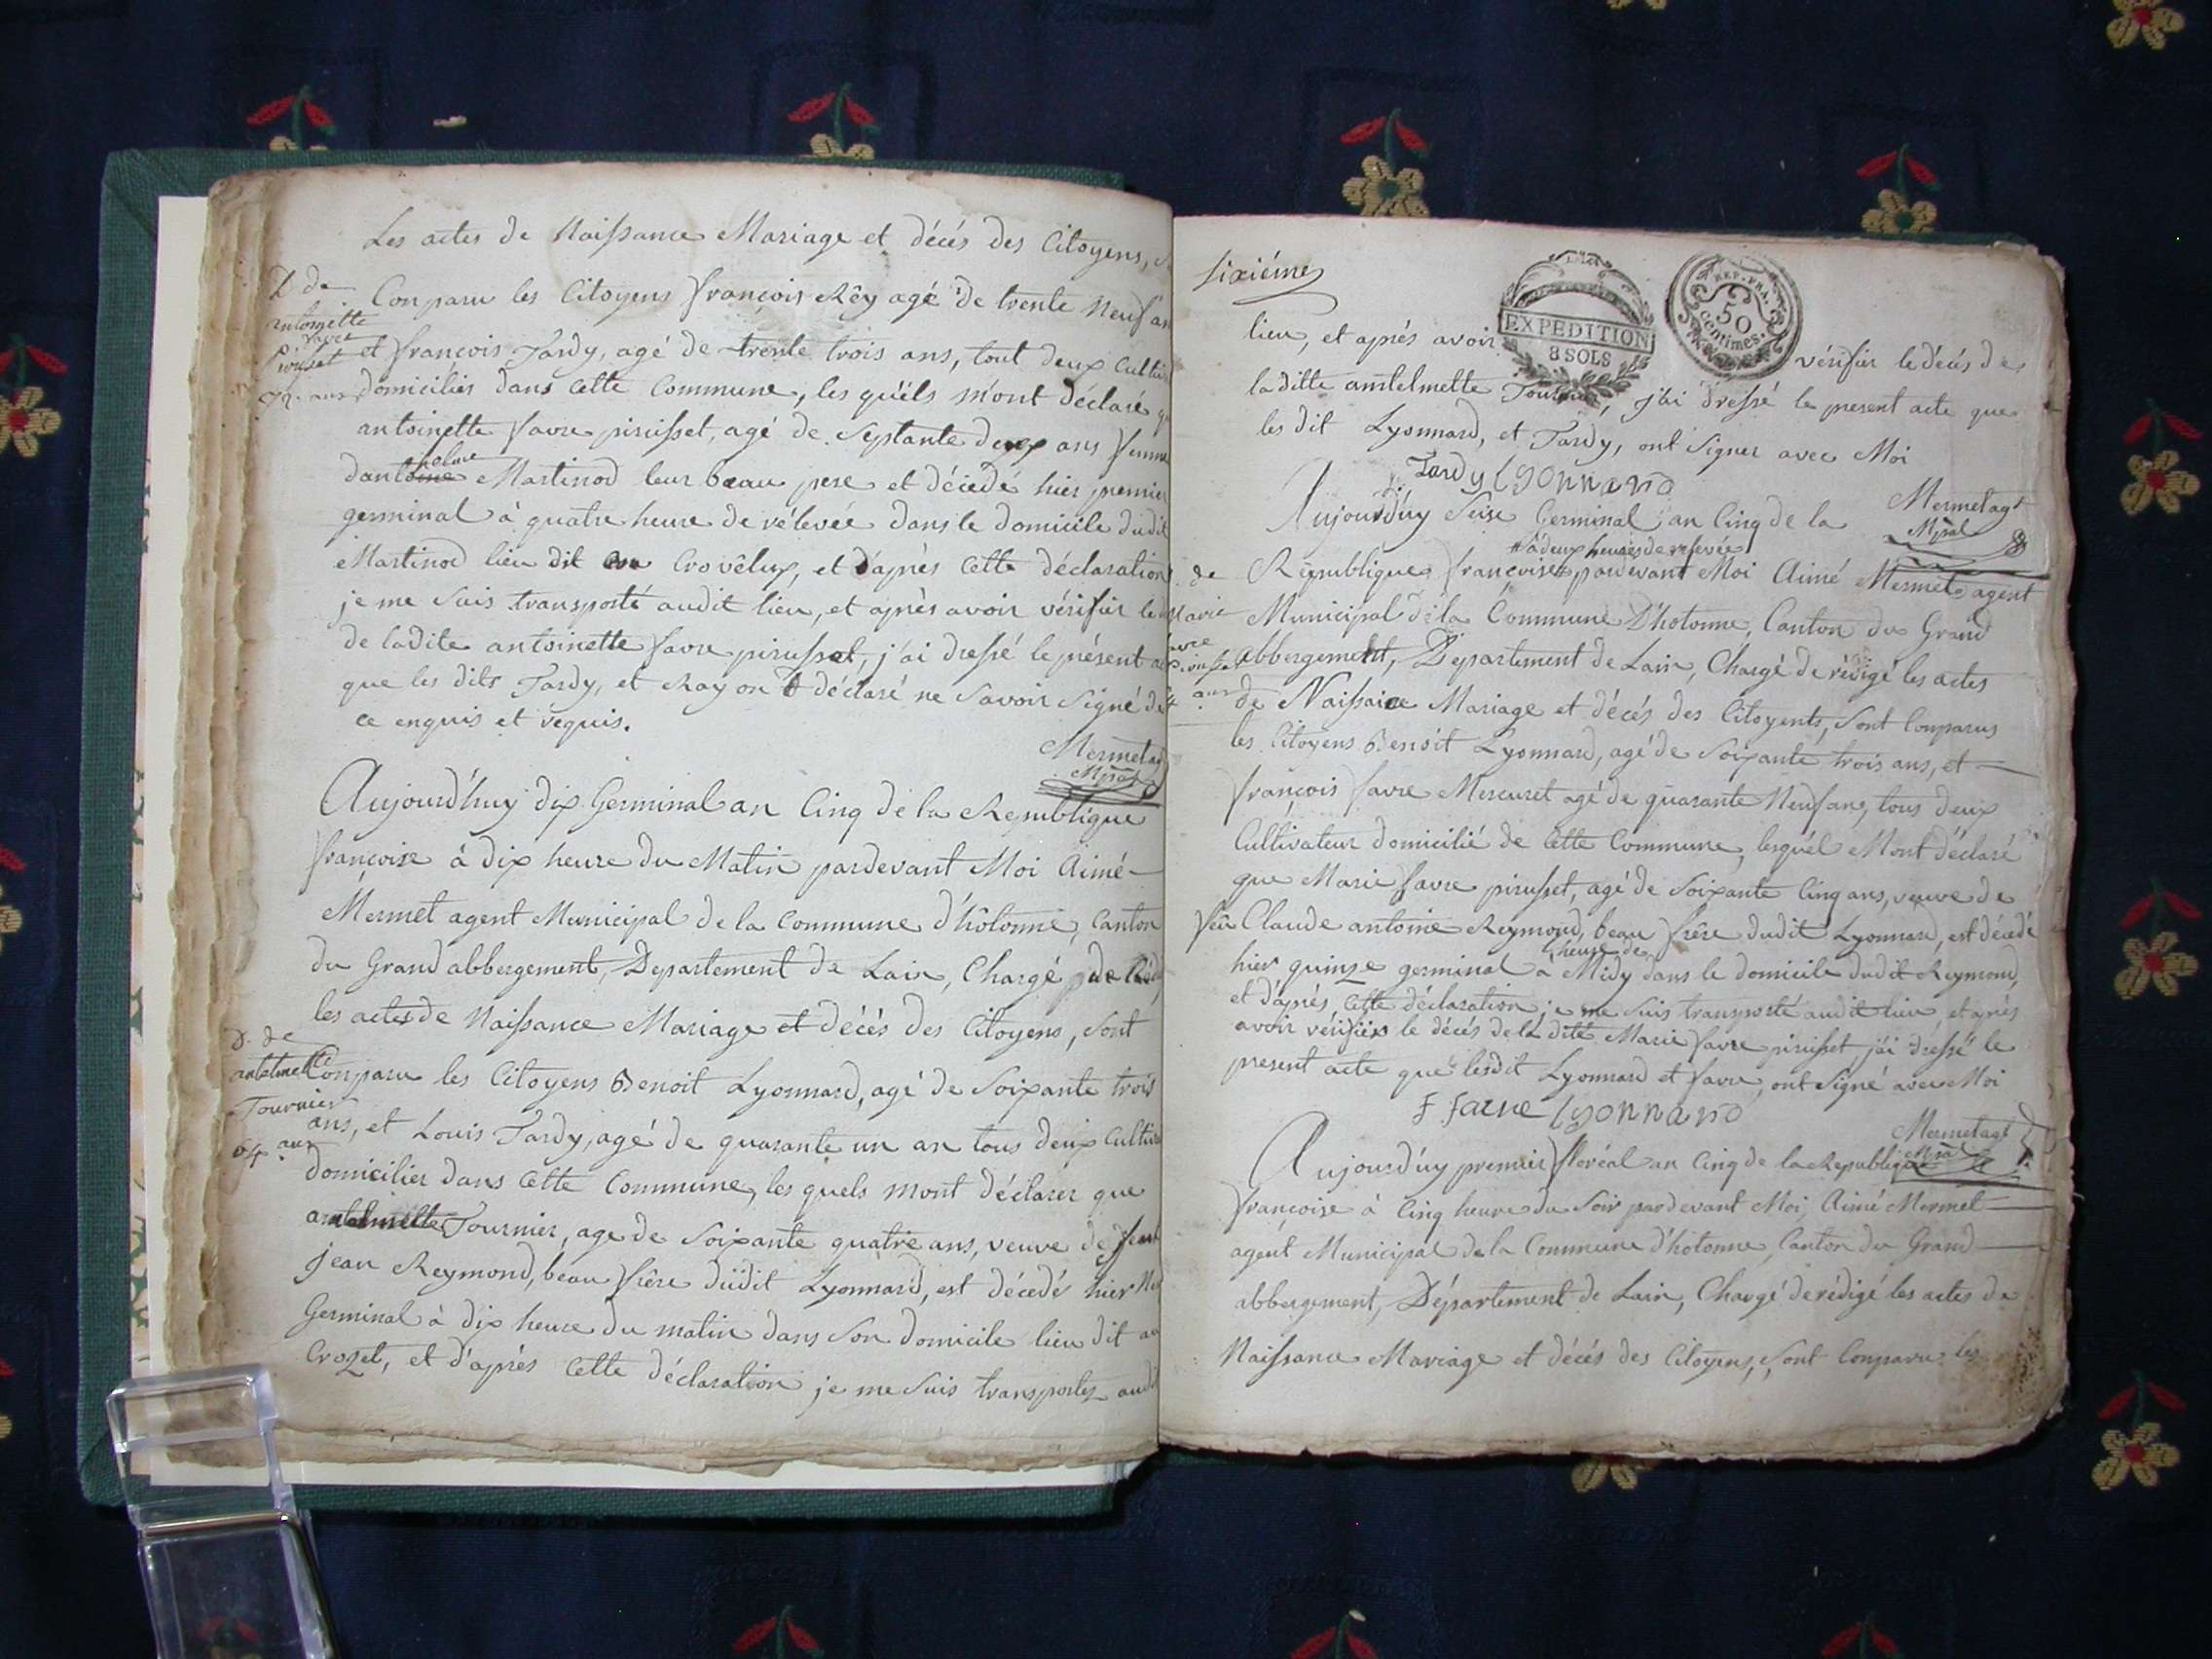 Les actes de Naissance Mariage et décés des Citoyens,
D de
antoinette
favre
Pirusset
72. ans
Conparu les Citoyens françois Rêy agé de trente Neuf an
et françois Tardy, agé de trente trois ans, tout deux Cultiv
domiciliés dans cette Commune, les quéls m'ont déclaré q
antoinette favre pirusset, agé de Septante deux ans femme
dantoine Martinod leur beau pere et décédé hier premier
germinal à quatre heure de rélevée dans le domicile dudit
Martinod lieu dit en Crovêlup, et d'aprés cette déclaration
je me suis transporté audit lieu, et après avoir vérifiér le
de ladite antoinette favre pirusset, j'ai dressé le présent a
que les dits Tardy, et Rayon déclaré ne savoir signé de
ce enquis et requis.
Mermet ag
Mpal
Aujourd'huy dix Germinal an Cinq de la Republique
françoise à dix heure du Matin pardevant Moi Aimé
Mermet agent Municipal de la Commune d'hôtonne, Canton
du Grand abbergement, Departement de Lain, Chargé de
les actes de Naissance Mariage et décés des Citoyens, sont
D. de
antelmette
Tournier
64. ans
Conparu les Citoyens Benoit Lyonnard, agé de Soixante trois
ans, et Louis Tardy, agé de quarante un an tous deux Cultiv
domicilier dans cette Commune, les quels mont déclarer que
antelmette Tournier, age de Soixante quatre ans, veuve de feu
jean Reymond, beau frêre dudit Lyonnard, est décédé hier Ne
Germinal à dix heure du matin dans Son domicile lieu dit au
Crozet, et d'aprés cette déclaration je me suis transporter aud
Sixiéme
EXPEDITION
8 SOLS
REP. FRA.
50
centimes.
lieu, et aprés avoir vérifiér le décés de
laditte antelmette Tournier, j'ai dressé le present acte que
les dit Lyonnard, et Tardy, ont Signer avec Moi
L. Tardy Lyonnard
Mermet agt
Mpal
Aujourd'uy Seise Germinal an Cinq de la
à deux heures de relevée
Republique françoise pardevant Moi Aimé Mermet agent
de
Marie
favre
Pirusset
ans
Municipal de la Commune D'hotonne, Canton du Grand
abbergement, Departement de Lain, Chargé de rédigé les actes
de Naissance Mariage et décés des Citoyents, sont Comparus
les Citoyens Benoit Lyonnard, agé de Soixante trois ans, et
françois favre Mercuret agé de quarante Neuf ans, tous deux
Cultivateur domicilié de Cette Commune, lesquél Mont déclaré
que Marie favre pirusset, agé de Soixante Cinq ans, veuve de
feu Claude antoine Reymond, beau frêre dudit Lyonnard, est décédé
heure de
hier quinze germinal a Midy dans le domicile dudit Reymond,
et d'aprés Cette déclaration je me suis transporté audit lieu et aprés
avoir vérifier le décés de la dite Marie favre pirusset, j'ai dressé le
present acte que lesdit Lyonnard et favre, ont signé avec Moi
F favre Lyonnard
Mermet agt
Mpal
Aujourd'uy premier floréal an Cinq de la Republique
françoise à Cinq heure du Soir pardevant Moi, Aimé Mermet
agent Municipal de la Commune d'hotonne, Canton du Grand
abbergement, Département de Lain, Chargé de rédigé les actes de
Naissance Mariage et décés des Citoyens, sont Conparu les